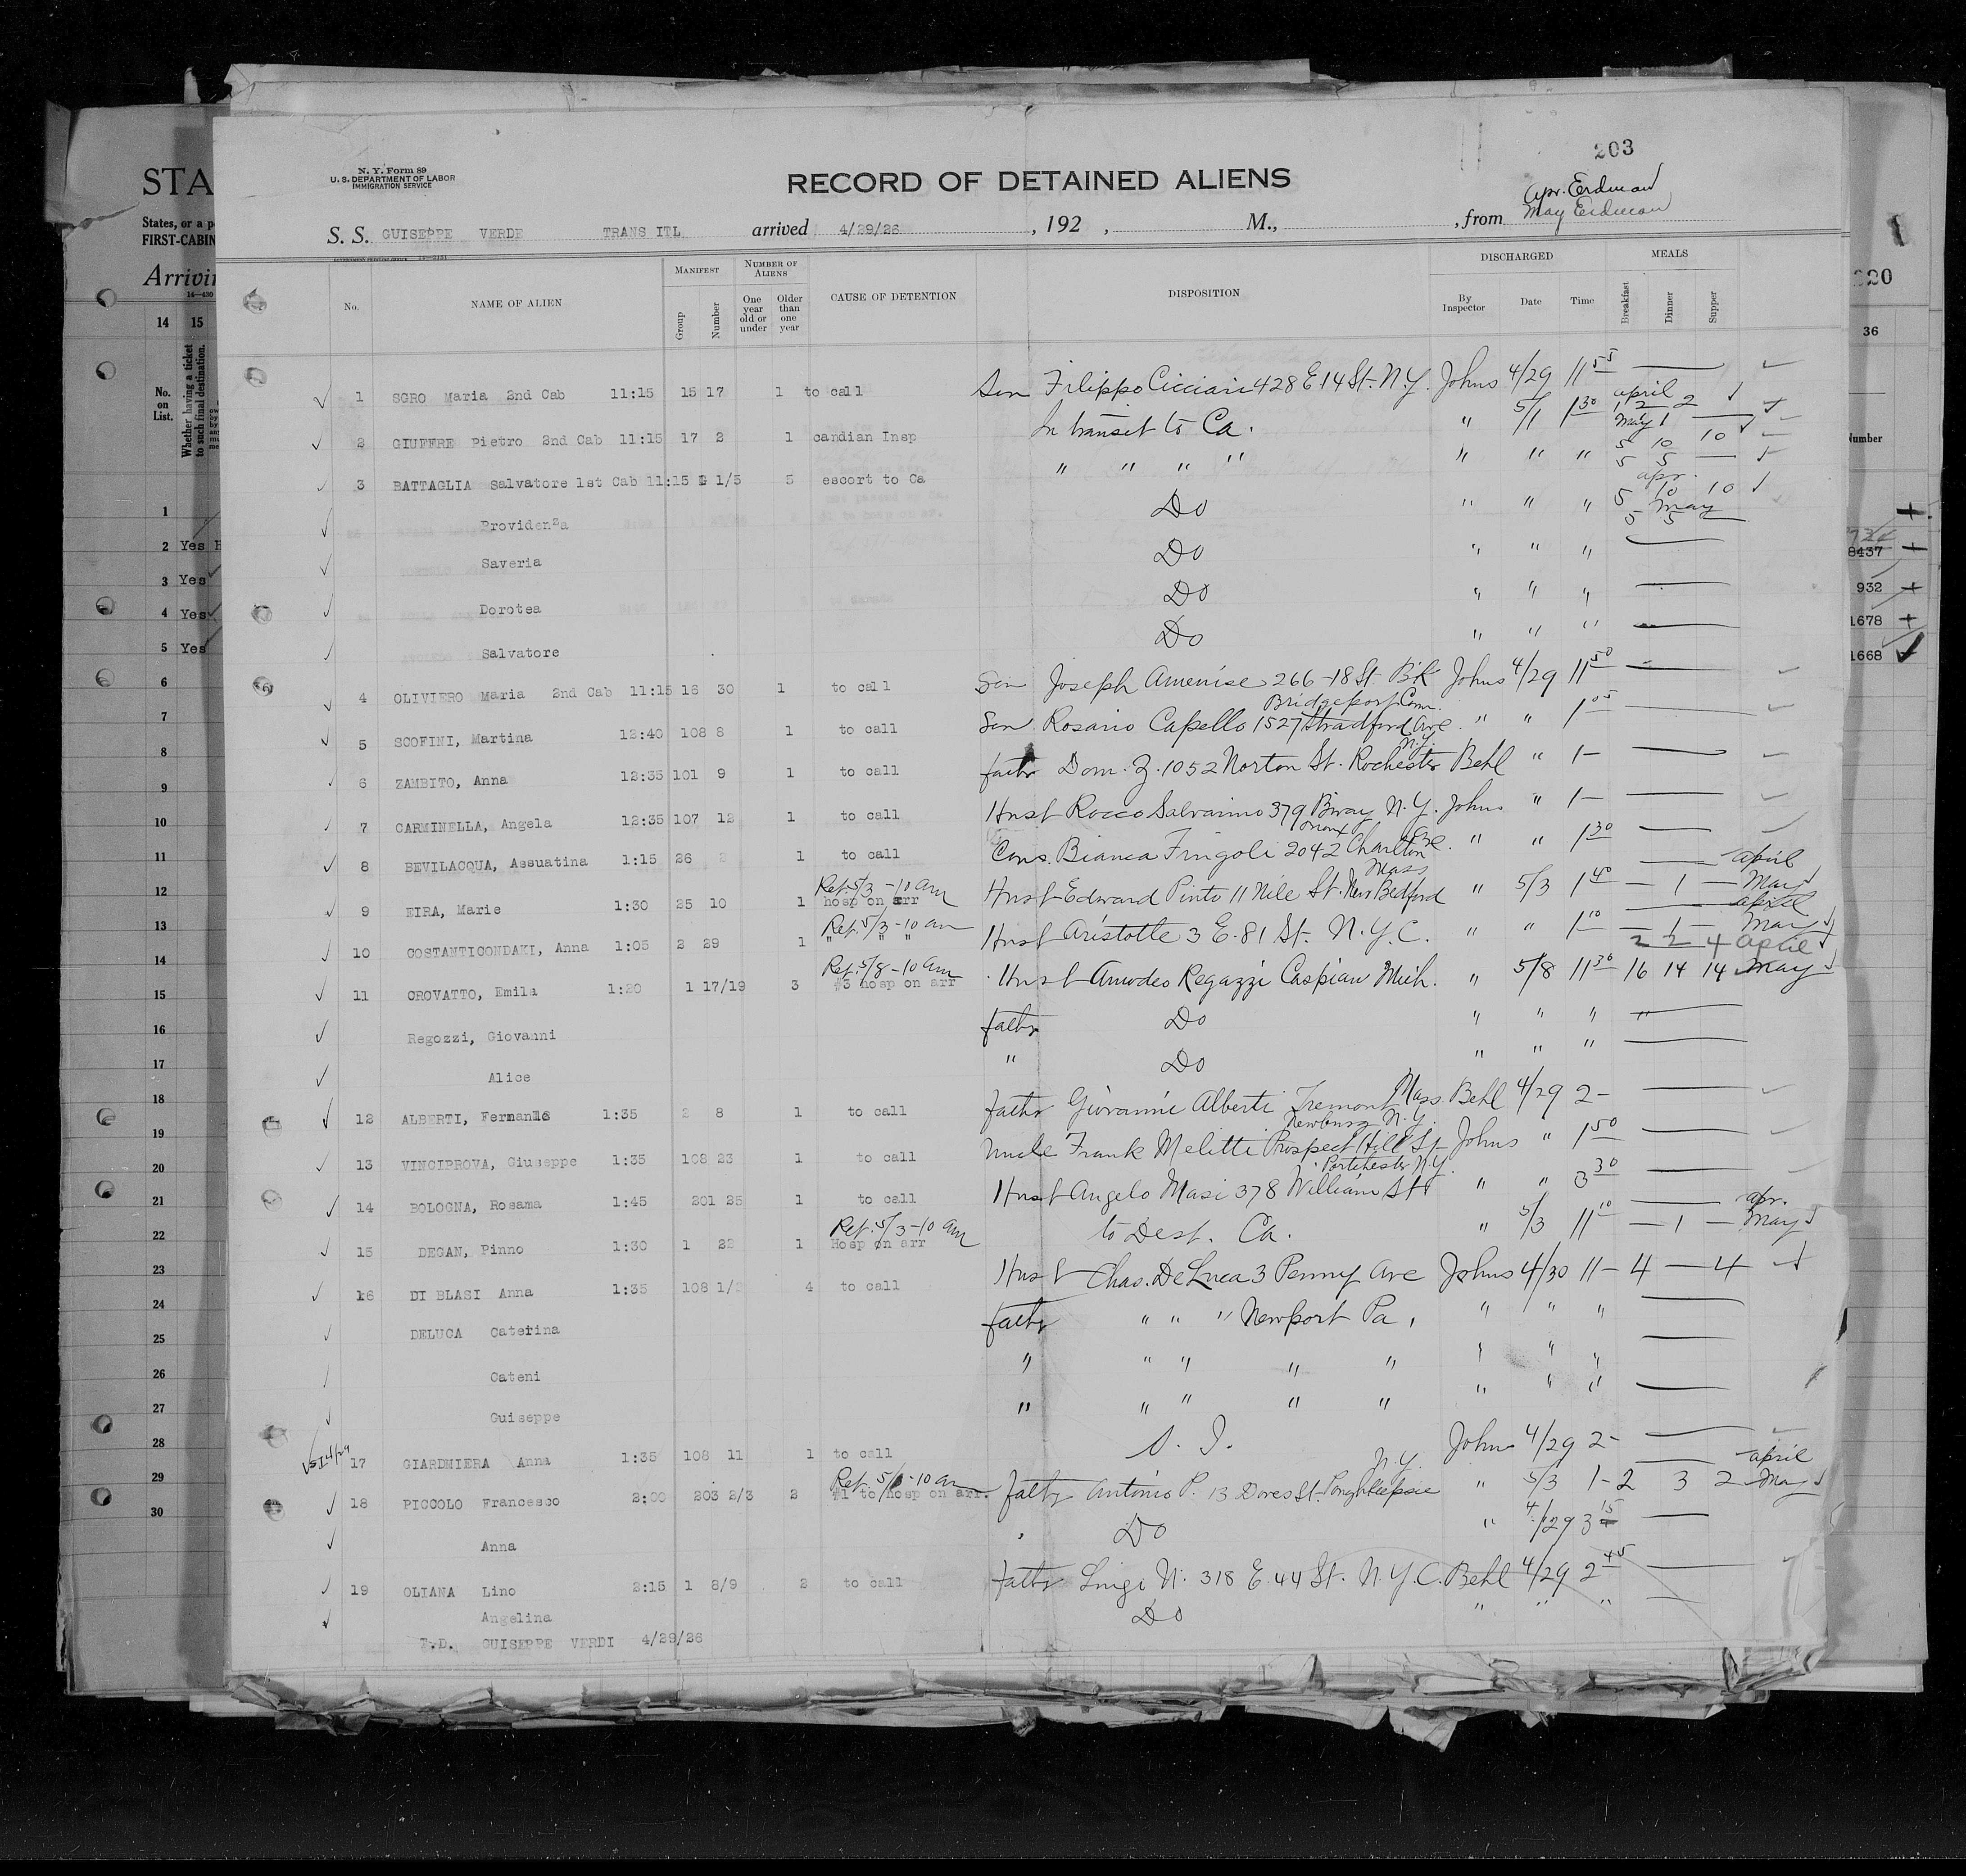 203
N. Y. Form 89
U. S. DEPARTMENT OF LABOR
IMMIGRATION SERVICE
RECORD OF DETAINED ALIENS
Apr. Erdman
May Erdman
S. S. GUISEPPE VERDE TRANS ITL arrived 4/29/26, 192 , M., , from
No. NAME OF ALIEN MANIFEST Group Number NUMBER OF ALIENS One year old or under Older than one year CAUSE OF DETENTION DISPOSITION DISCHARGED By Inspector Date Time MEALS Breakfast Dinner Supper
1 SGRO Maria 2nd Cab 11:15 15 17 1 to call Son Filippo Cicciari 428 E 14 St. N.Y. Johns 4/29 11 55
april
2 GIUFFRE Pietro 2nd Cab 11:15 17 2 1 candian Insp In transit to Ca. " 5/1 1 30 2 2
May 1
3 BATTAGLIA Salvatore 1st Cab 11:15 1/5 5 escort to Ca " " " " " " " 5 10 10
5 5 —
apr.
Providenza Do " " " 5 10 10
May
5 5
Saveria Do " " "
Dorotea Do " " "
Salvatore Do " " "
4 OLIVIERO Maria 2nd Cab 11:15 16 30 1 to call Son Joseph Amenise 266-18 St. Bk Johns 4/29 11 50
Bridgeport Conn.
5 SCOFINI, Martina 12:40 108 8 1 to call Son Rosario Capello 1527 Stradford Ave. " " 1 05
N.Y.
6 ZAMBITO, Anna 12:35 101 9 1 to call fathr Dom. Z. 1052 Norton St. Rochester Behl " 1 —
7 CARMINELLA, Angela 12:35 107 12 1 to call Husb Rocco Salvarino 379 Bway N.Y. Johns " 1 —
8 BEVILACQUA, Assuatina 1:15 26 1 to call Cous. Bianca Fingoli 2042 Charlton Ave. " " 1 30
Mass april
Ret. 5/3 - 10 am
9 EIRA, Marie 1:30 25 10 1 hosp on arr Husb Edward Pinto 11 Nile St. New Bedford " 5/3 1 40 — 1 — May
april
Ret. 5/3 - 10 am
10 COSTANTICONDAKI, Anna 1:05 2 29 1 " " " Husb Aristotle 3 E. 81 St. N.Y.C. " " 1 10 — 1 — May
2 2 4 april
Ret. 5/8 - 10 am
11 CROVATTO, Emila 1:20 1 17/19 3 #3 hosp on arr Husb Amodeo Regazzi Caspian Mich. " 5/8 11 30 16 14 14 May
Regozzi, Giovanni fathr Do " " "
Alice " Do " " "
12 ALBERTI, Fernando 1:35 2 8 1 to call fathr Giovanni Alberti Tremont Mass. Behl 4/29 2 -
Newburg N.Y.
13 VINCIPROVA, Giuseppe 1:35 108 23 1 to call Uncle Frank Melitti Prospect Hill St. Johns " 1 50
Portchester N.Y.
14 BOLOGNA, Rosama 1:45 201 25 1 to call Husb Angelo Masi 378 William St " " 3 30
apr.
Ret. 5/3 - 10 am
15 DEGAN, Pinno 1:30 1 22 1 Hosp on arr to Dest. Ca. " 5/3 11 10 — 1 — May
16 DI BLASI Anna 1:35 108 1/ 4 to call Husb Chas. DeLuca 3 Penny Ave Johns 4/30 11 — 4 — 4
DELUCA Caterina fathr " " " Newport Pa. " " "
Cateni " " " " " " " "
Guiseppe " " " " " " " "
S I 4/29 17 GIARDMIERA Anna 1:35 108 11 1 to call S. I. Johns 4/29 2 -
N.Y. april
Ret. 5/ - 10 am
18 PICCOLO Francesco 2:00 203 2/3 2 #1 to hosp on arr. fathr Antonio P. 13 Dores St. Poughkeepsie " 5/3 1 - 2 3 2 May
Anna " Do " 4/29 3 15
19 OLIANA Lino 2:15 1 8/9 2 to call fathr Luigi N. 318 E. 44 St. N.Y.C. Behl 4/29 2 45
Angelina Do " " "
F.D. GUISEPPE VERDI 4/29/26
STA
States, or a p
FIRST-CABIN
Arrivi
14 15
No. on List.
Whether having a ticket to such final destination.
1
2 Yes
3 Yes
4 Yes
5 Yes
6
7
8
9
10
11
12
13
14
15
16
17
18
19
20
21
22
23
24
25
26
27
28
29
30
20
36
Number
8437
932
1678
1668